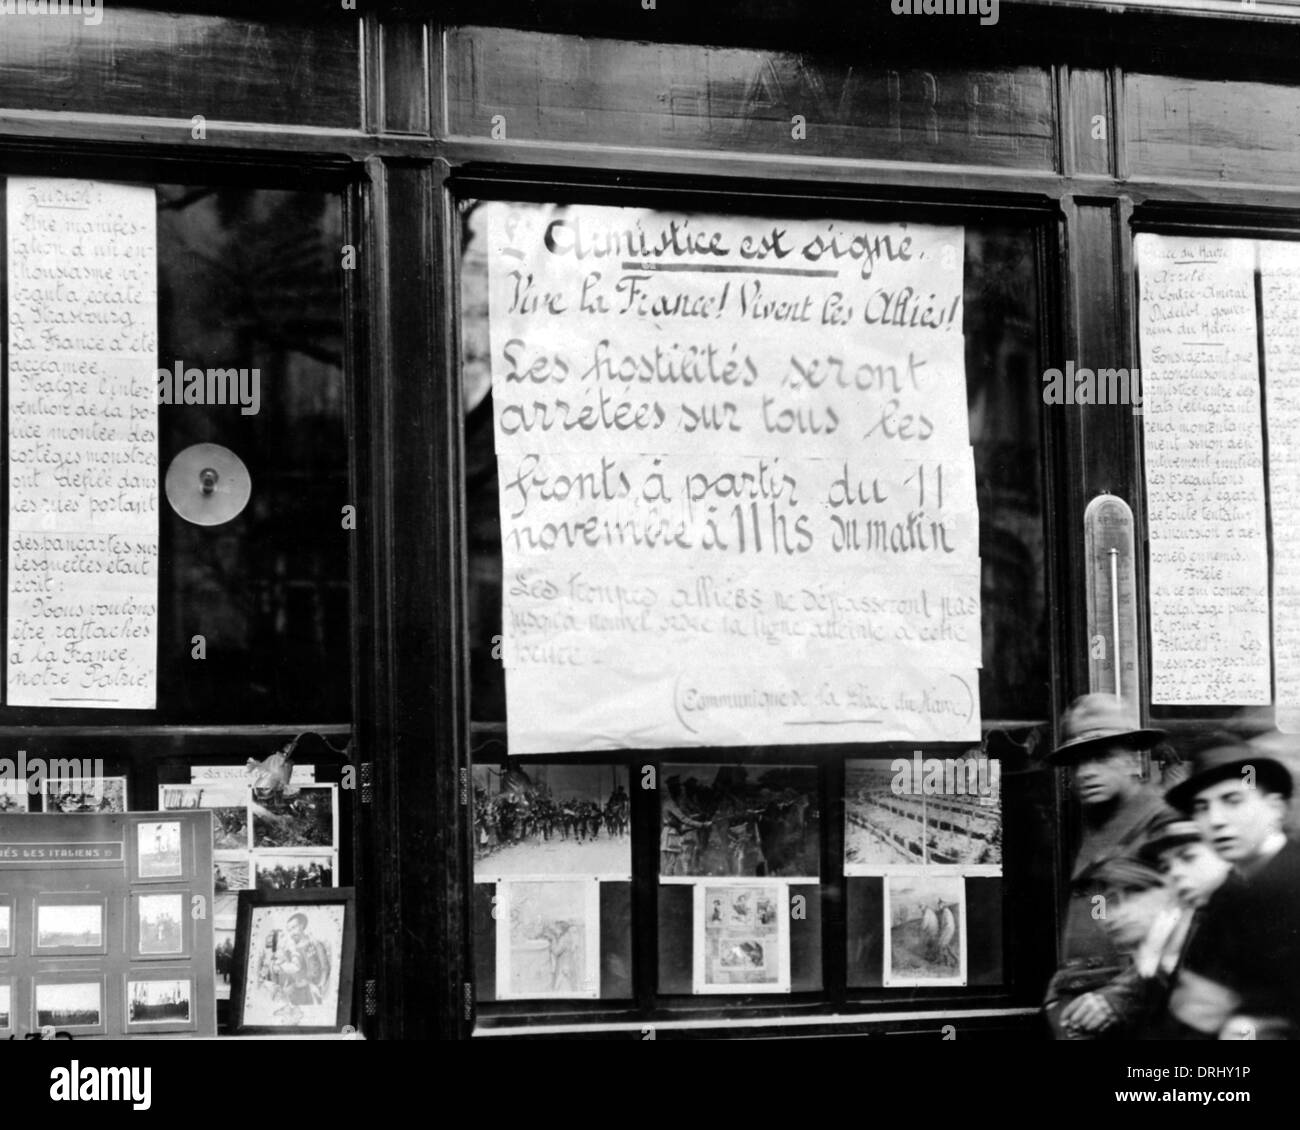 LE HAVRE
Zurich:
Une manifes-
tation d'un en-
thousiasme vi-
brant a éclaté
à Strasbourg
La France a été
acclamée.
Malgré l'inter-
vention de la po-
lice montée des
cortèges monstres
ont défilé dans
les rues portant
des pancartes sur
lesquelles était
écrit:
"Nous voulons
être rattachés
à la France,
notre Patrie"
L'Armistice est signé.
Vive la France! Vivent les Alliés!
Les hostilités seront
arrêtées sur tous les
fronts, à partir du 11
novembre à 11 hs du matin
Les troupes alliées ne dépasseront pas
jusqu'à nouvel ordre la ligne atteinte à cette
heure.
(Communiqué de la Place du Havre.)
Place du Havre
Arrêté
Le Contre-Amiral
Didelot, gouver-
neur du Havre.
Considérant que
la conclusion d'un
armistice entre les
Etats belligérants
rend momentané-
ment sinon défi-
nitivement inutiles
les précautions
prises à l'égard
de toute tentative
d'incursion d'aé-
ronefs ennemis.
Arrête:
en ce qui concerne
l'éclairage public
et privé
Article 1er: Les
mesures prescrites
par l'arrêté en
date du 23 Janvier
La vict
ÉS LES ITALIENS
alamy
alamy
Image ID: DRHY1P
www.alamy.com